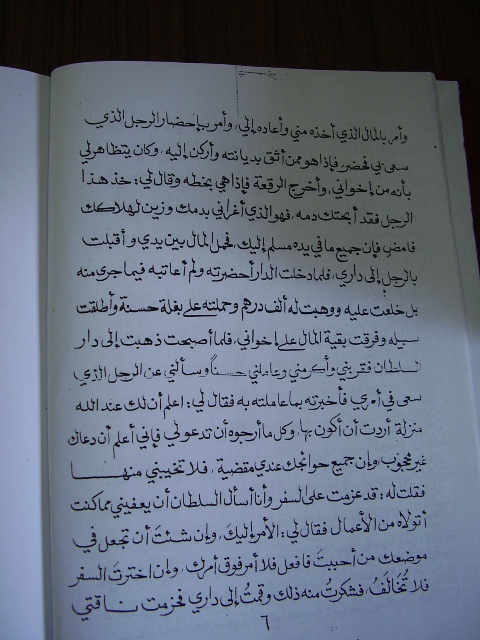 وأمر بالمال الذي أخذه مني وأعاده إلي، وأمر بإحضار الرجل الذي
سعى بي فحضر، فإذا هو ممن أثق بديانته وأركن إليه، وكان يتظاهر لي
بأنه من إخواني، وأخرج الرقعة فإذا هي بخطه وقال لي: خذ هذا
الرجل فقد أبحتك دمه، فهو الذي أغراني بدمك وزين لهلاكك
فامض فإن جميع ما في يده مسلم إليك، فحمل المال بين يدي وأقبلت
بالرجل إلى داري، فلما دخلت الدار أحضرته ولم أعاتبه فيما جرى منه
بل خلعت عليه ووهبت له ألف درهم وحملته على بغلة حسنة وأطلقت
سبيله وفرقت بقية المال على إخواني، فلما أصبحت ذهبت إلى دار
السلطان فقربني وأكرمني وعاملني حسناً وسألني عن الرجل الذي
سعى في أمري فأخبرته بما عاملته به فقال لي: اعلم أن لك عند الله
منزلة أردت أن أكون بها، وكل ما أرجوه أن تدعو لي فإني أعلم أن دعاك
غير محجوب، وإن جميع حوائجك عندي مقضية، فلا تخيبني منها
فقلت له: قد عزمت على السفر وأنا أسأل السلطان أن يعفيني مما كنت
أتولاه من الأعمال فقال لي: الأمر إليك، وإن شئت أن تجعل في
موضعك من أحببت فافعل فلا أمر فوق أمرك، وإن اخترت السفر
فلا تُخالَفُ، فشكرت منه ذلك وقمت إلى داري فحزمت ناقتي
٦